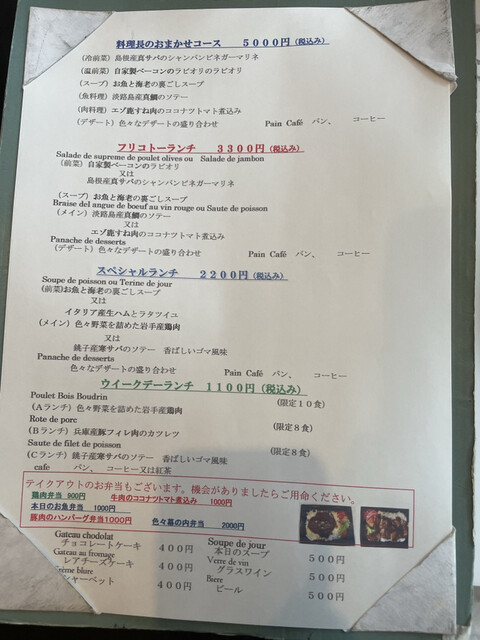 料理長のおまかせコース　５０００円（税込み）
（冷前菜）島根産真サバのシャンパンビネガーマリネ
（温前菜）自家製ベーコンのラビオリのラビオリ
（スープ）お魚と海老の裏ごしスープ
（魚料理）淡路島産真鯛のソテー
（肉料理）エゾ鹿すね肉のココナツトマト煮込み
（デザート）色々なデザートの盛り合わせ　Pain Café　パン、　コーヒー
フリコトーランチ　３３００円（税込み）
Salade de supreme de poulet olives ou　Salade de jambon
（前菜）自家製ベーコンのラビオリ
又は
島根産真サバのシャンパンビネガーマリネ
（スープ）お魚と海老の裏ごしスープ
Braise del angue de boeuf au vin rouge ou Saute de poisson
（メイン）淡路島産真鯛のソテー
又は
エゾ鹿すね肉のココナツトマト煮込み
Panache de desserts
（デザート）色々なデザートの盛り合わせ　Pain Café　パン、　コーヒー
スペシャルランチ　２２００円（税込み）
Soupe de poisson ou Terine de jour
（前菜）お魚と海老の裏ごしスープ
又は
イタリア産生ハムとラタツイユ
（メイン）色々野菜を詰めた岩手産鶏肉
又は
銚子産寒サバのソテー　香ばしいゴマ風味
Panache de desserts
色々なデザートの盛り合わせ　Pain Café　パン　コーヒー
ウイークデーランチ　１１００円（税込み）
Poulet Bois Boudrin
（Aランチ）色々野菜を詰めた岩手産鶏肉　（限定１０食）
Rote de porc
（Bランチ）兵庫産豚フィレ肉のカツレツ　（限定８食）
Saute de filet de poisson
（Cランチ）銚子産寒サバのソテー　香ばしいゴマ風味　（限定８食）
cafe　パン、　コーヒー又は紅茶
テイクアウトのお弁当もございます。機会がありましたらご用命ください。
鶏肉弁当　900円　牛肉のココナツトマト煮込み　1000円
本日のお魚弁当　1000円
豚肉のハンバーグ弁当1000円　色々幕の内弁当　2000円
Gateau chodolat
チョコレートケーキ　４００円
Gateau au fromage
レアチーズケーキ　４００円
Crème blure
シャーベット　４００円
Soupe de jour
本日のスープ　５００円
Verre de vin
グラスワイン　５００円
Biere
ビール　５００円